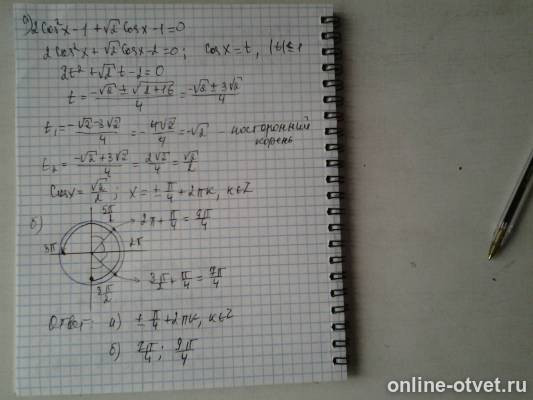 а) 2cos²x-1+√2 cosx-1=0
2cos²x+√2 cosx-2=0; cosx=t, |t|≤1
2t²+√2 t-2=0
t=(-√2±√(2+16))/4=(-√2±3√2)/4
t₁=(-√2-3√2)/4=-4√2/4=-√2 - посторонний
корень
t₂=(-√2+3√2)/4=2√2/4=√2/2
cosx=√2/2; x=±π/4+2πk, k∈Z
б)
5π/2
2π+π/4=9π/4
3π
2π
3π/2+π/4=7π/4
3π/2
Ответ: а) ±π/4+2πk, k∈Z
б) 7π/4; 9π/4
online-otvet.ru